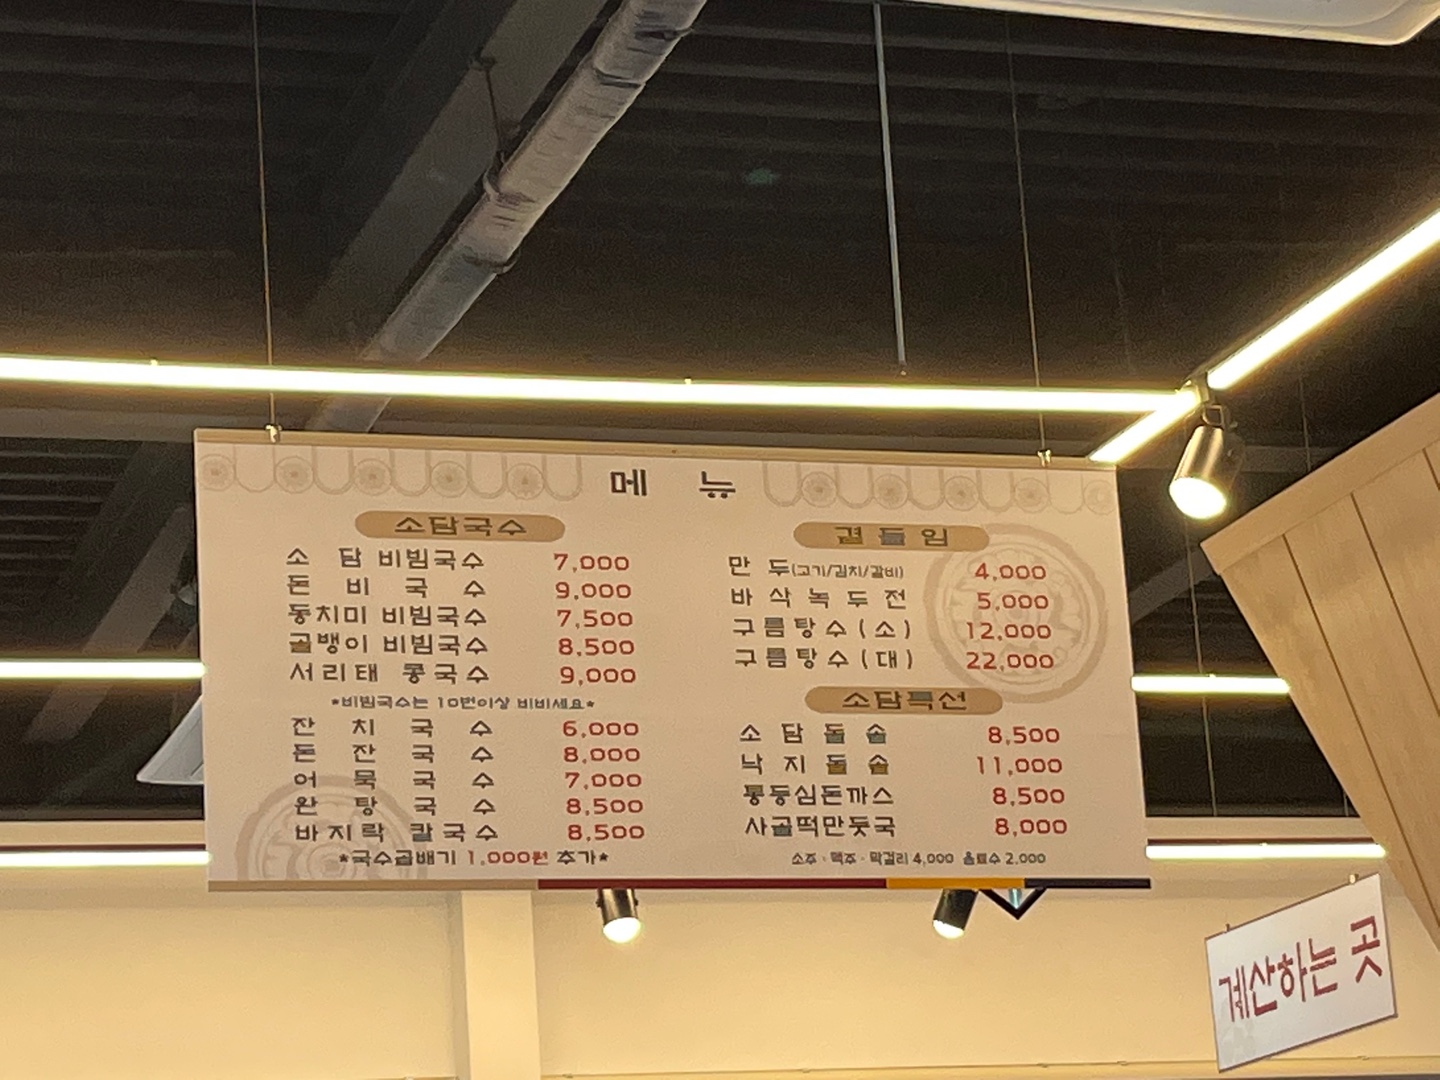 메 뉴
소담국수
소 담 비빔국수 7,000
돈 비 국 수 9,000
동치미 비빔국수 7,500
골뱅이 비빔국수 8,500
서리태 콩국수 9,000
*비빔국수는 10번이상 비비세요*
잔 치 국 수 6,000
돈 잔 국 수 8,000
어 묵 국 수 7,000
완 탕 국 수 8,500
바지락 칼국수 8,500
*국수곱배기 1,000원 추가*
곁 들 임
만 두(고기/김치/갈비) 4,000
바 삭 녹 두 전 5,000
구름탕수(소) 12,000
구름탕수(대) 22,000
소담특선
소 담 돌 솥 8,500
낙 지 돌 솥 11,000
통등심돈까스 8,500
사골떡만둣국 8,000
소주·맥주·막걸리 4,000 음료수 2,000
계산하는 곳